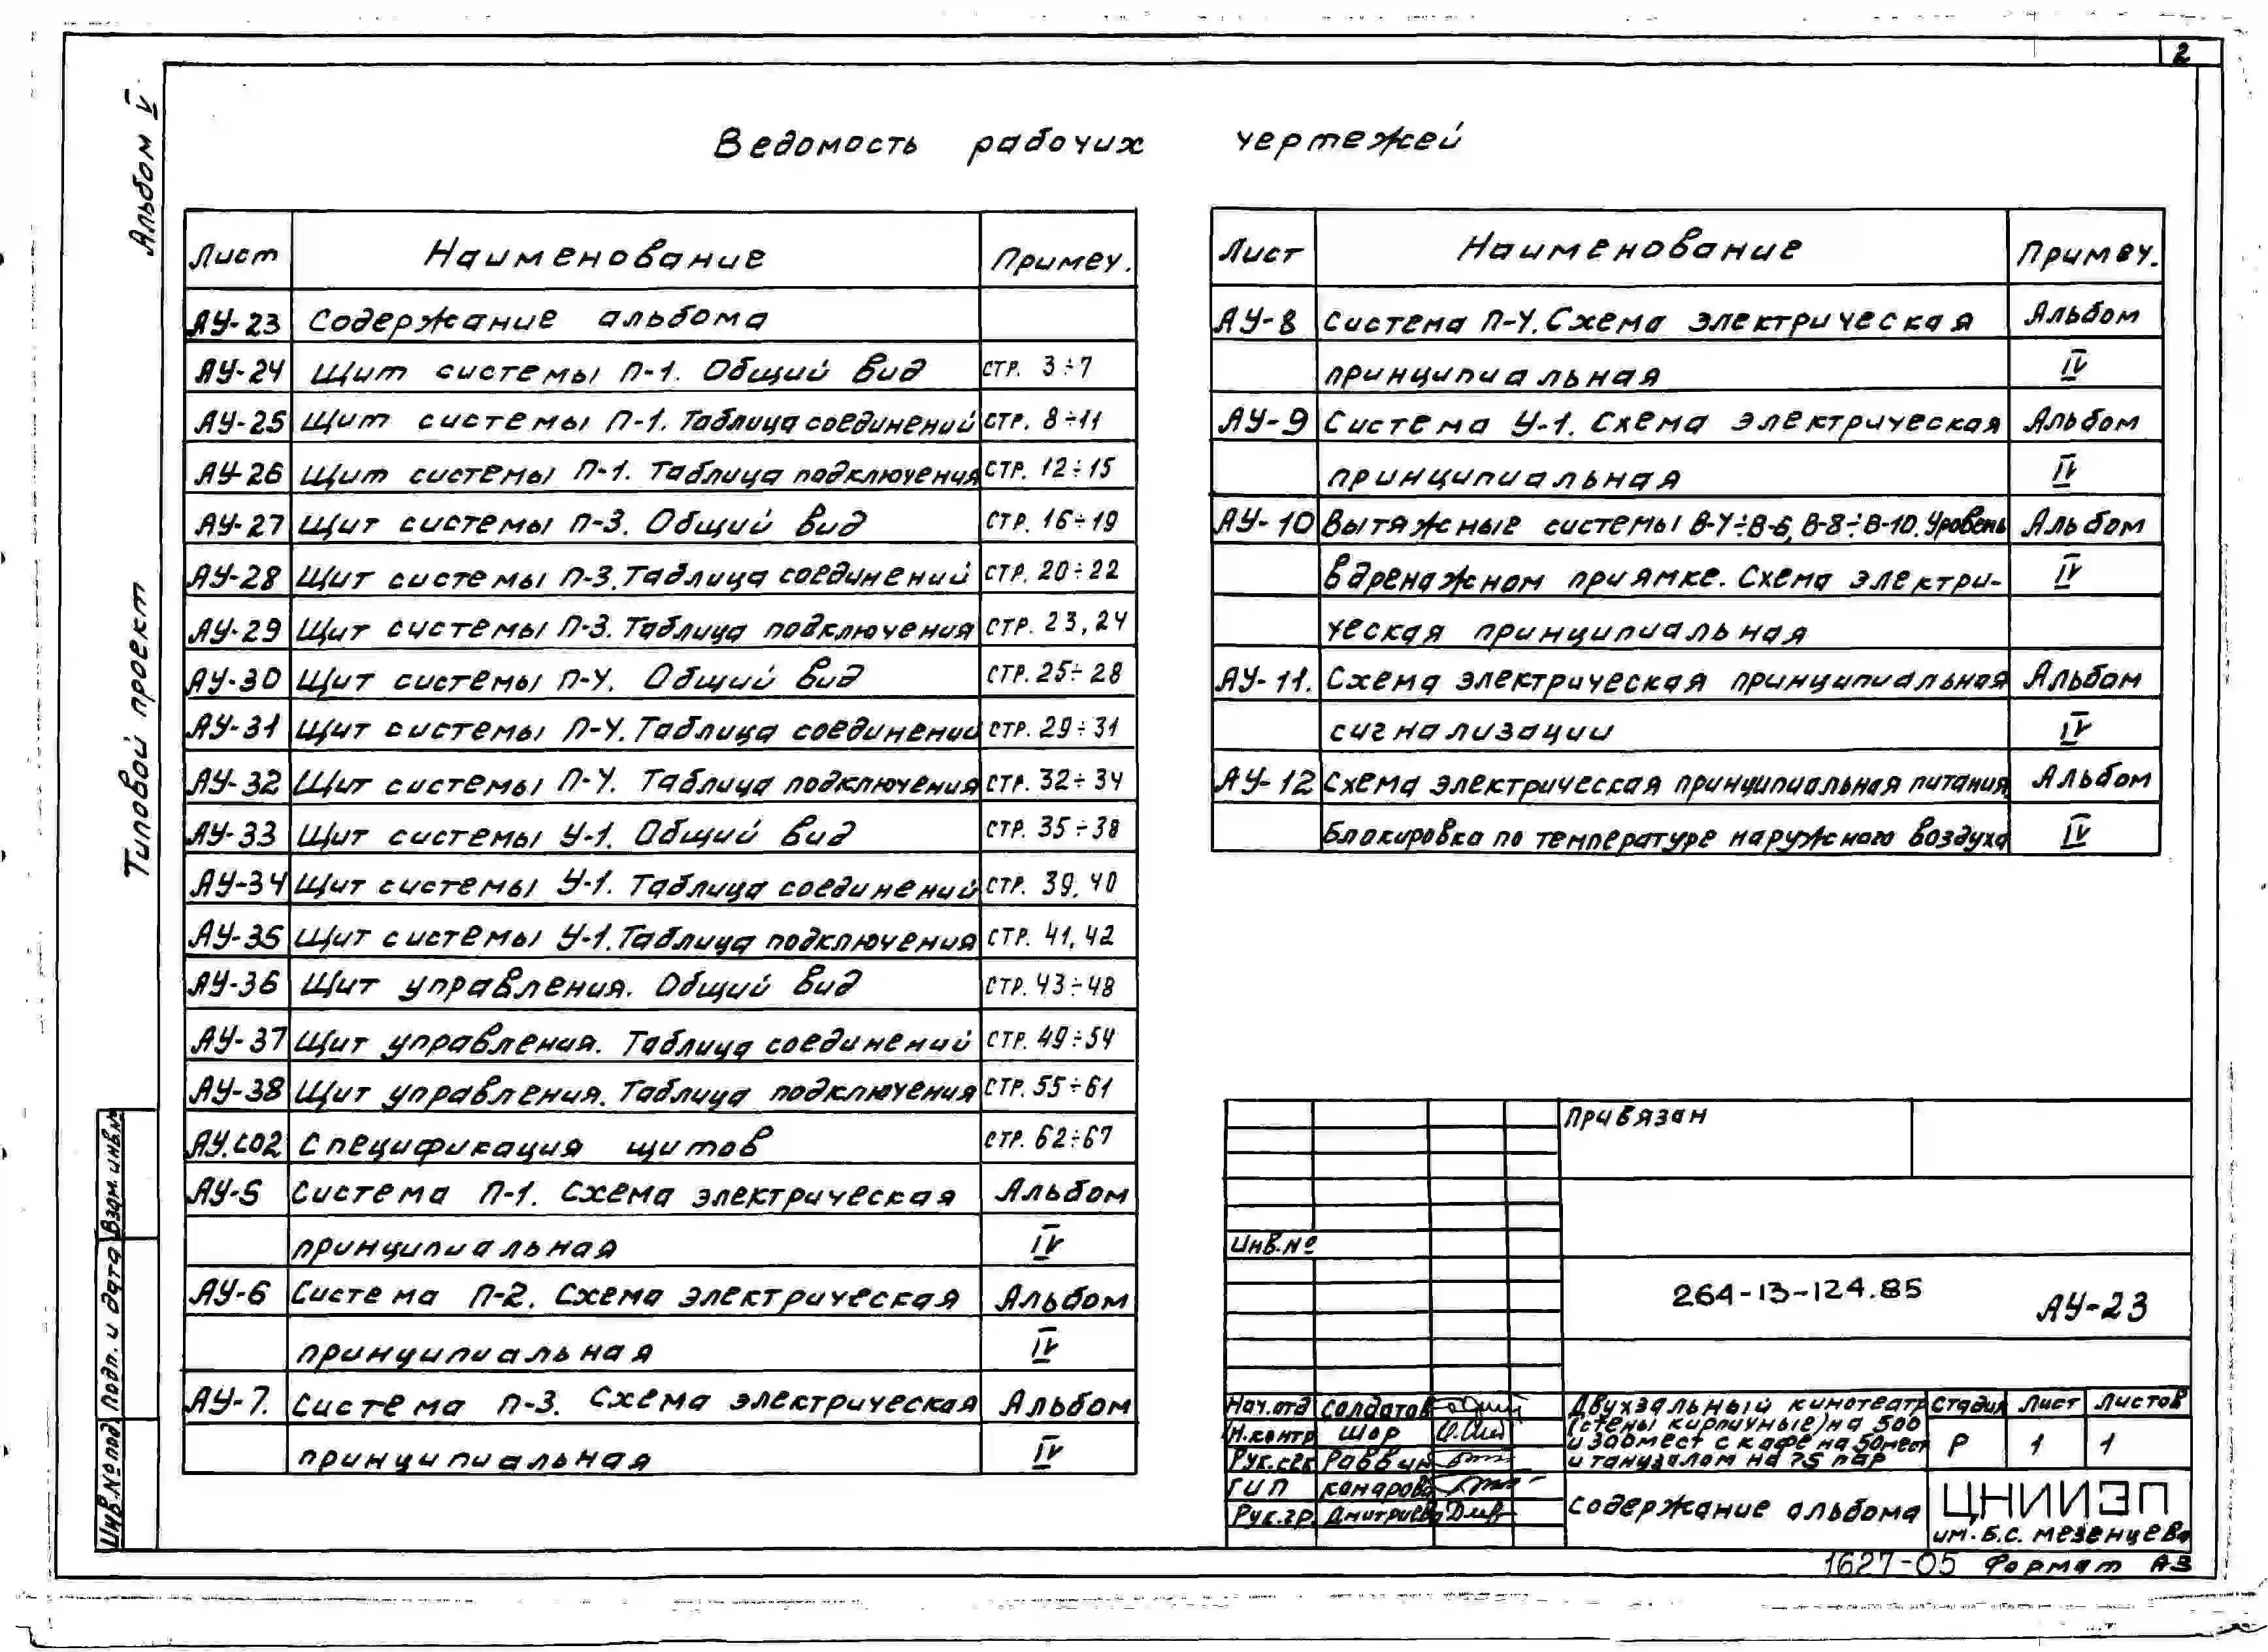 2
Альбом V
Типовой проект
Ведомость рабочих чертежей
Лист Наименование Примеч.
АУ-23 Содержание альбома
АУ-24 Щит системы П-1. Общий вид стр. 3÷7
АУ-25 Щит системы П-1. Таблица соединений стр. 8÷11
АУ-26 Щит системы П-1. Таблица подключения стр. 12÷15
АУ-27 Щит системы П-3. Общий вид стр. 16÷19
АУ-28 Щит системы П-3. Таблица соединений стр. 20÷22
АУ-29 Щит системы П-3. Таблица подключения стр. 23, 24
АУ-30 Щит системы П-4. Общий вид стр. 25÷28
АУ-31 Щит системы П-4. Таблица соединений стр. 29÷31
АУ-32 Щит системы П-4. Таблица подключения стр. 32÷34
АУ-33 Щит системы У-1. Общий вид стр. 35÷38
АУ-34 Щит системы У-1. Таблица соединений стр. 39, 40
АУ-35 Щит системы У-1. Таблица подключения стр. 41, 42
АУ-36 Щит управления. Общий вид стр. 43÷48
АУ-37 Щит управления. Таблица соединений стр. 49÷54
АУ-38 Щит управления. Таблица подключения стр. 55÷61
АУ.СО2 Спецификация щитов стр. 62÷67
АУ-5 Система П-1. Схема электрическая Альбом
принципиальная IV
АУ-6 Система П-2. Схема электрическая Альбом
принципиальная IV
АУ-7. Система П-3. Схема электрическая Альбом
принципиальная IV
Лист Наименование Примеч.
АУ-8 Система П-4. Схема электрическая Альбом
принципиальная IV
АУ-9 Система У-1. Схема электрическая Альбом
принципиальная IV
АУ-10 Вытяжные системы В-4÷В-6, В-8÷В-10. Уровень Альбом
в дренажном приямке. Схема электри- IV
ческая принципиальная
АУ-11. Схема электрическая принципиальная Альбом
сигнализации IV
АУ-12 Схема электрическая принципиальная питания. Альбом
Блокировка по температуре наружного воздуха IV
Привязан
Инв.№
264-13-124.85 АУ-23
Нач.отд Солдатов
Н.контр Шор
Рук.сек Раввин
ГИП Комарова
Рук.гр. Дмитриева
Двухзальный кинотеатр
(стены кирпичные) на 500
и 300 мест с кафе на 50 мест
и танцзалом на 75 пар
Стадия Лист Листов
Р 1 1
Содержание альбома
ЦНИИЭП
им. Б.С. Мезенцева
1627-05 Формат А3
Взам.инв.№
Подп. и дата
Инв.№ подл